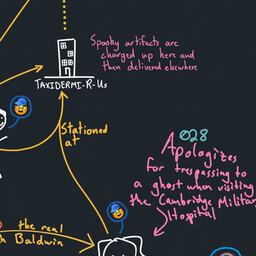 Spooky artifacts are
charged up here and
then delivered elsewhere
TAXIDERMI-R-Us
Stationed
at
028
Apologizes
for trespassing to
a ghost when visiting
the Cambridge Military
Hospital
the real
Baldwin